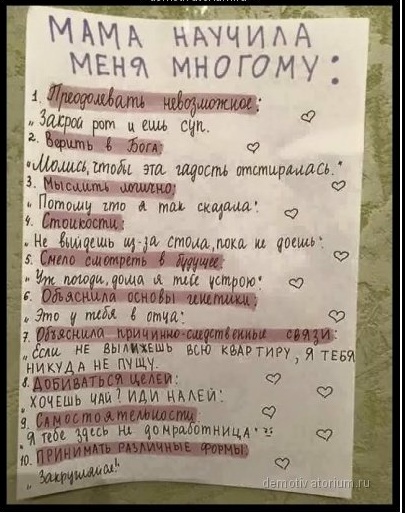 МАМА НАУЧИЛА
МЕНЯ МНОГОМУ:
1. Преодолевать невозможное:
„Закрой рот и ешь суп.
2. Верить в Бога:
„Молись, чтобы эта гадость отстиралась."
3. Мыслить логично:
„Потому что я так сказала".
4. Стойкости:
„Не выйдешь из-за стола, пока не доешь".
5. Смело смотреть в будущее:
„Уж погоди, дома я тебе устрою"
6. Объяснила основы генетики:
„Это у тебя в отца".
7. Объяснила причинно-следственные связи:
„Если НЕ ВЫЛИЖЕШЬ ВСЮ КВАРТИРУ, Я ТЕБЯ
НИКУДА НЕ ПУЩУ.
8. ДОБИВАТЬСЯ ЦЕЛЕЙ:
„ХОЧЕШЬ ЧАЙ? ИДИ НАЛЕЙ".
9. Самостоятельности:
"Я тебе здесь не домработница"
10. ПРИНИМАТЬ РАЗЛИЧНЫЕ ФОРМЫ:
„Закругляйся!"
demotivatorium.ru